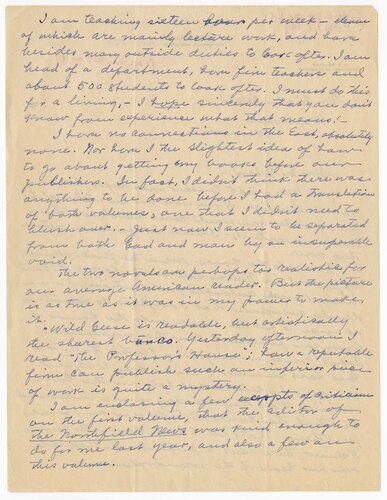 I am teaching sixteen hours per week – eleven
of which are mainly lecture work, and have
besides many outside duties to look after. I am
head of a department, have five teachers and
about 500 students to look after. I must do this
for a living, – I hope sincerely that you don't
know from experience what that means! –
I have no connections in the East, absolutely
none. Nor have I the slightest idea of how
to go about getting my books before our
publishers. In fact, I didn't think there was
anything to be done before I had a translation
of both volumes, one that I didn't need to
blush over. – Just now I seem to be separated
from both God and man by an insuperable
void.
The two novels are perhaps too realistic for
our average American reader. But the picture
is as true as it was in my power to make
it.
"Wild Geese" is readable, but artistically
the sharest bunco. Yesterday afternoon I
read "The Professor's House"; how a reputable
firm can publish such an inferior piece
of work is quite a mystery.
I am enclosing a few excerpts of criticism
on the first volume, that the editor of
the Northfield News was kind enough to
do for me last year, and also a few on
this volume.